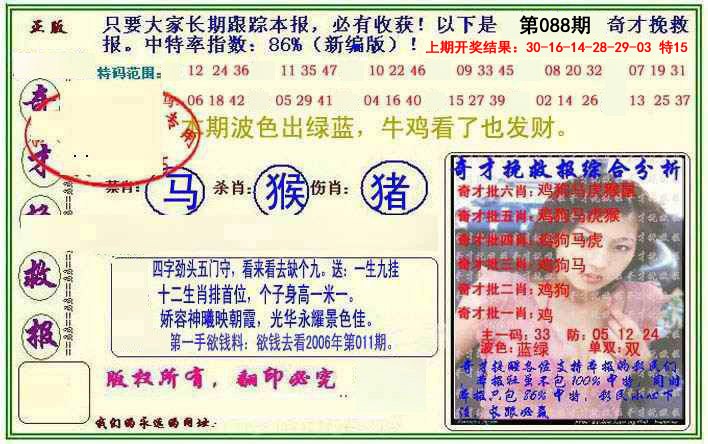 正版
只要大家长期跟踪本报，必有收获！以下是 第088期 奇才挽救
报。中特率指数：86%（新编版）！上期开奖结果：30-16-14-28-29-03 特15
特码范围： 12 24 36 11 35 47 10 22 46 09 33 45 08 20 32 07 19 31
06 18 42 05 29 41 04 16 40 15 27 39 02 14 26 13 25 37
本期波色出绿蓝，牛鸡看了也发财。
禁肖： 马 杀肖： 猴 伤肖： 猪
奇
才
救
报
四字劲头五门守，看来看去缺个九。送：一生九挂
十二生肖排首位，个子身高一米一。
娇容神曦映朝霞，光华永耀景色佳。
第一手欲钱料：欲钱去看2006年第011期。
版权所有，翻印必究
我们的永远的网址：
奇才挽救报综合分析
奇才批六肖：鸡狗马虎猴鼠
奇才批五肖：鸡狗马虎猴
奇才批四肖：鸡狗马虎
奇才批三肖：鸡狗马
奇才批二肖：鸡狗
奇才批一肖：鸡
主一码：33 防：05 12 24
波色：蓝绿 单双：双
奇才挽救各位支持本报的彩民们
本报组虽不包100%中特，但对
本报只包86%中特，彩民小心下
注